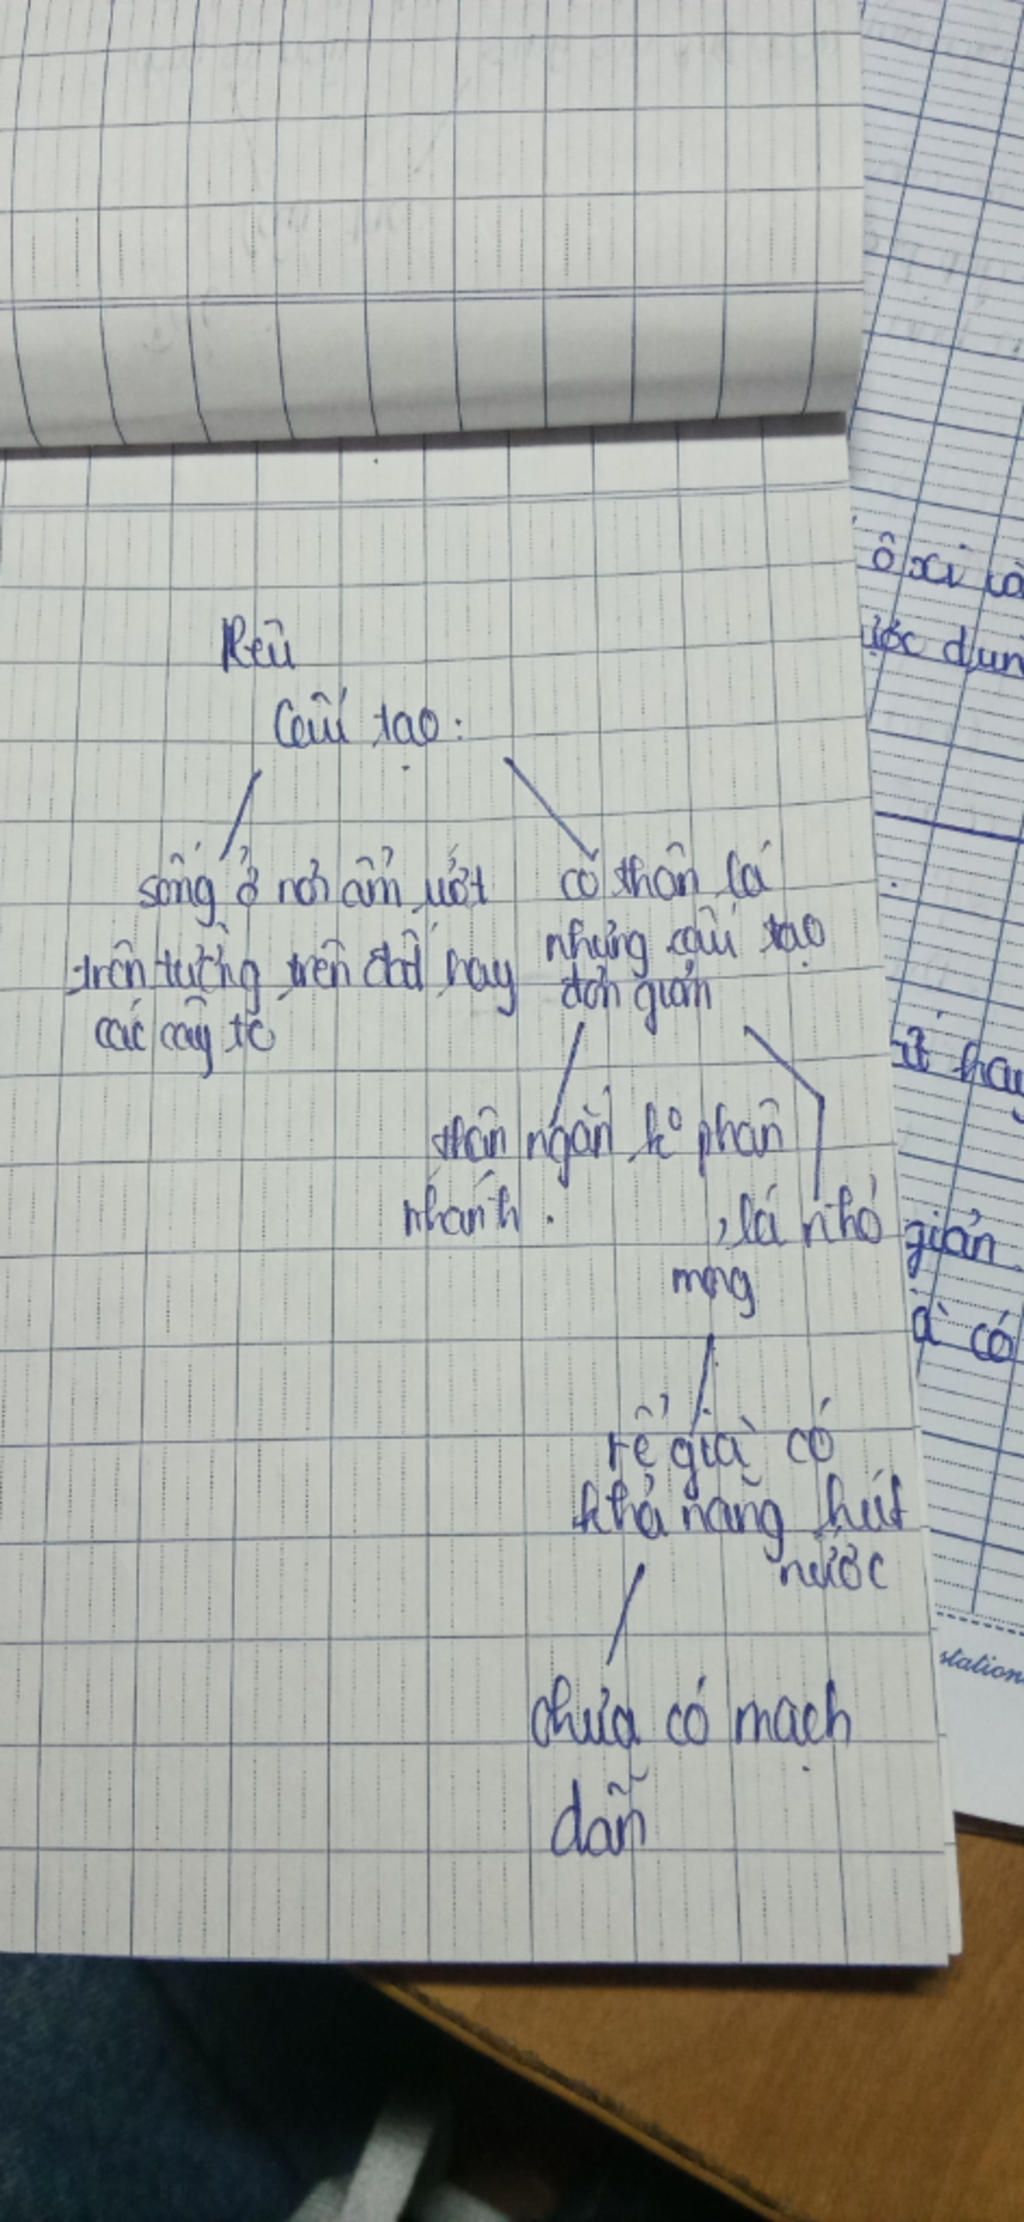 Rêu
Cấu tạo:
sống ở nơi ẩm ướt
trên tường, trên đất hay
các cây to
có thân lá
nhưng cấu tạo
đơn giản
thân ngắn k° phân
nhánh.
, lá nhỏ
mỏng
rễ giả có
khả năng hút
nước
chưa có mạch
dẫn
ô xi
ước
hay
giản.
có
station